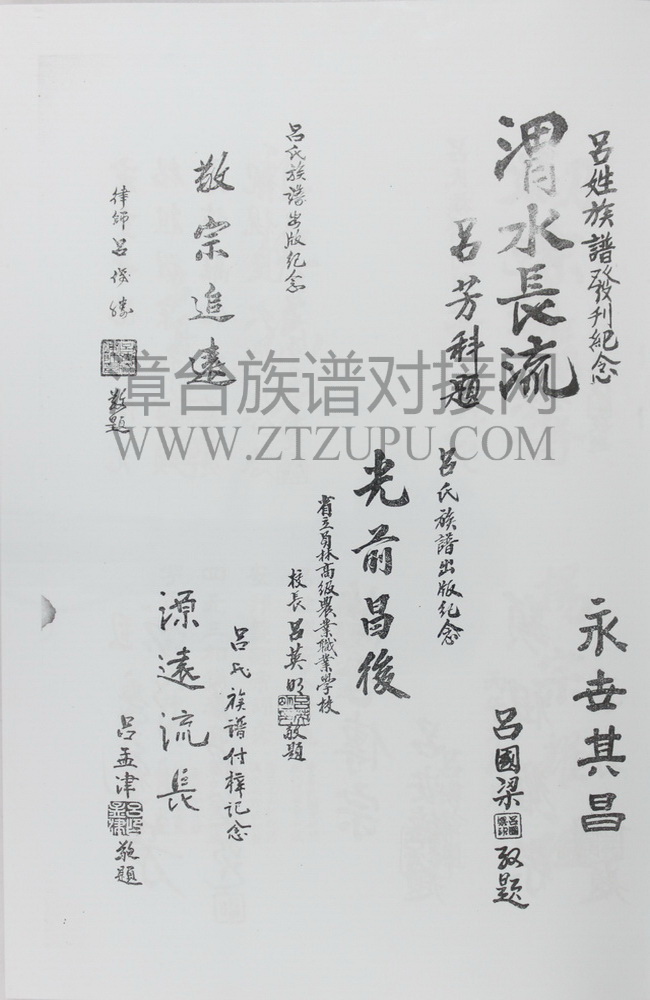 呂姓族譜發刋紀念
渭水長流
呂芳科題
呂氏族譜出版紀念
敬宗追遠
律師呂俊
敬題
漳台族谱对接网
WWW.ZTZUPU.COM
永世其昌
呂國梁
敬題
呂氏族譜出版紀念
光前昌後
省立員林高級農業職業學校
校長呂英明
敬題
呂氏族譜付梓記念
源遠流長
呂孟津
敬題